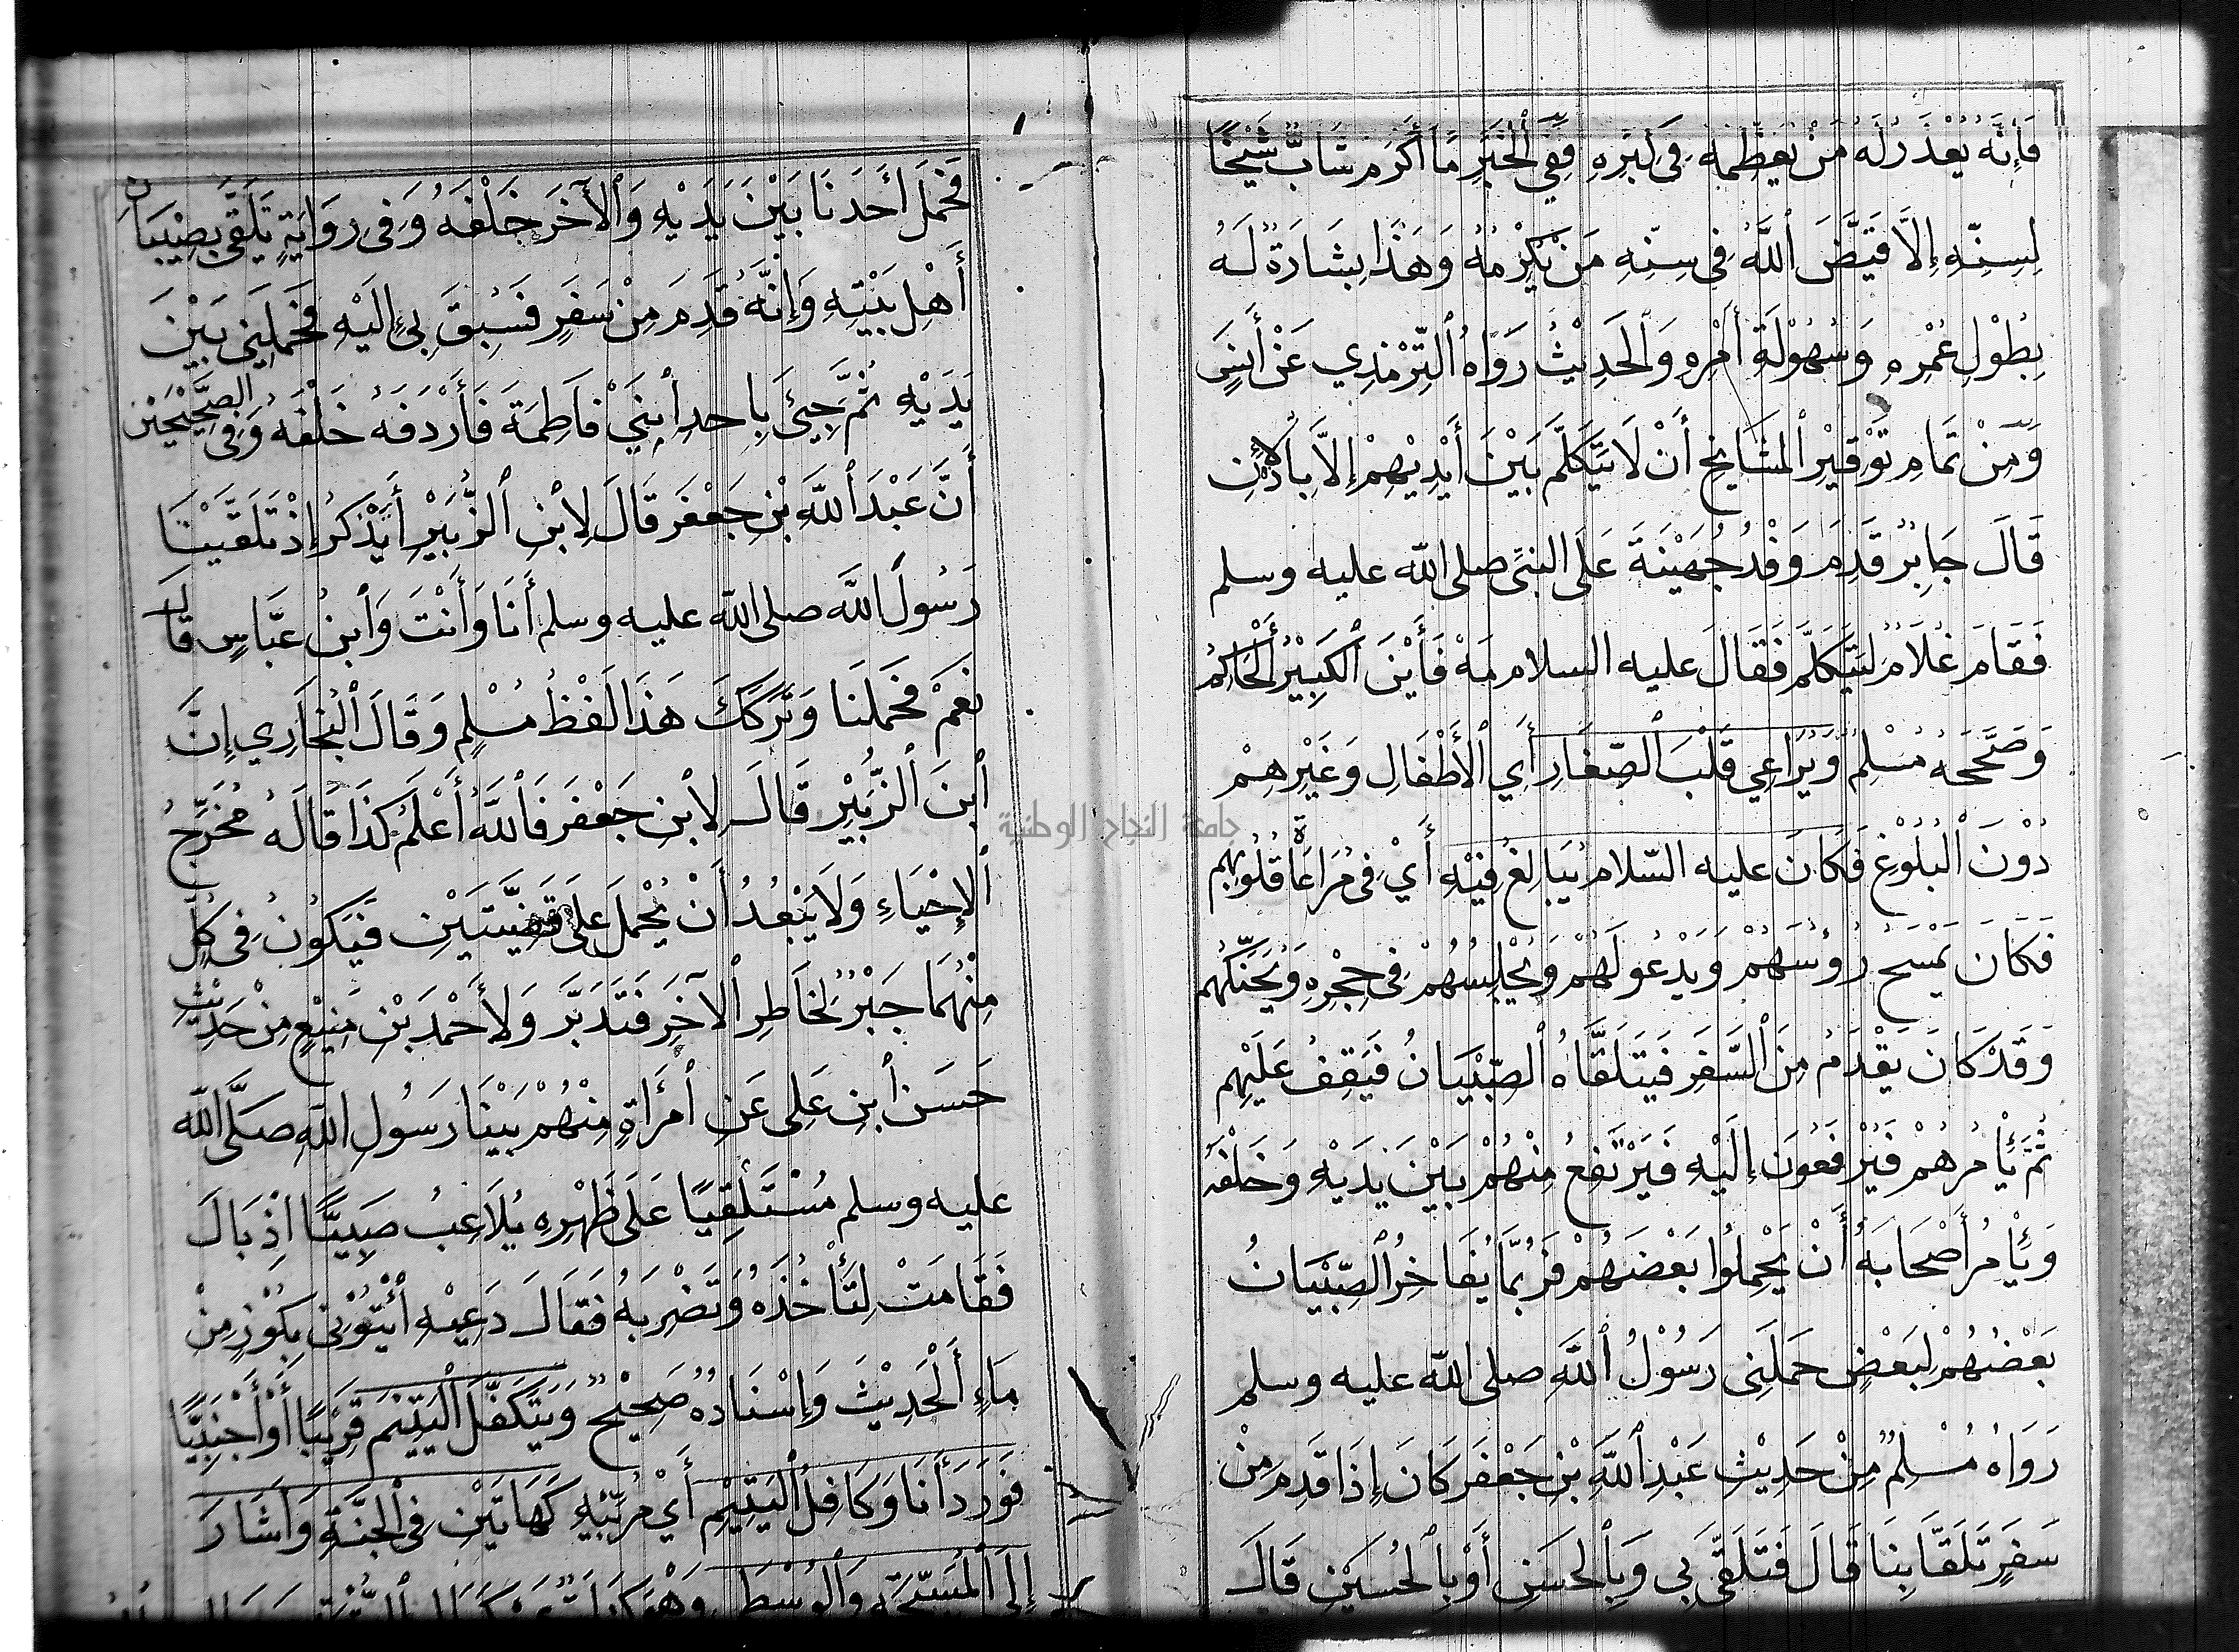 فَإِنَّهُ يُعْذَرُ لَهُ مَنْ يُعَظِّمُهُ فِي كِبَرِهِ فَفِي الْخَبَرِ مَا أَكْرَمَ شَابٌّ شَيْخًا
لِسِنِّهِ إِلَّا قَيَّضَ اللَّهُ فِي سِنِّهِ مَنْ يُكْرِمُهُ وَهَذَا بِشَارَةٌ لَهُ
بِطُوْلِ عُمْرِهِ وَسُهُوْلَةِ أَمْرِهِ وَالْحَدِيْثُ رَوَاهُ التِّرْمِذِي عَنْ أَنَسٍ
وَمِنْ تَمَامِ تَوْقِيْرِ الْمَشَايِخِ أَنْ لَا يَتَكَلَّمَ بَيْنَ أَيْدِيْهِمْ إِلَّا بِالْإِذْنِ
قَالَ جَابِرٌ قَدِمَ وَفْدُ جُهَيْنَةَ عَلَى النَّبِيِّ صلى الله عليه وسلم
فَقَامَ غُلَامٌ لِيَتَكَلَّمَ فَقَالَ عليه السلام مَهْ فَأَيْنَ الْكَبِيْرُ الْحَاكِمُ
وَصَحَّحَهُ مُسْلِمٌ وَيُرَاعِي قَلْبَ الصِّغَارِ أَيِ الْأَطْفَالِ وَغَيْرِهِمْ
دُوْنَ الْبُلُوْغِ فَكَانَ عليه السّلام يُبَالِغُ فِيْهِ أَيْ فِي مُرَاعَاةِ قُلُوْبِهِمْ
فَكَانَ يَمْسَحُ رُؤُسَهُمْ وَيَدْعُو لَهُمْ وَيُجْلِسُهُمْ فِي حِجْرِهِ وَيُحَنِّكُهُم
وَقَدْ كَانَ يَقْدَمُ مِنَ السَّفَرِ فَيَتَلَقَّاهُ الصِّبْيَانُ فَيَقِفُ عَلَيْهِم
ثُمَّ يَأْمُرُهُمْ فَيُرْفَعُوْنَ إِلَيْهِ فَيَرْتَفِعُ مِنْهُمْ بَيْنَ يَدَيْهِ وَخَلْفَهُ
وَيَأْمُرُ أَصْحَابَهُ أَنْ يَحْمِلُوا بَعْضَهُمْ فَرُبَّمَا يُفَاخِرُ الصِّبْيَانُ
بَعْضُهُمْ لِبَعْضٍ حَمَلَنِي رَسُوْلُ اللَّهِ صلى الله عليه وسلم
رَوَاهُ مُسْلِمٌ مِنْ حَدِيْثِ عَبْدِ اللَّهِ بْنِ جَعْفَر كَانَ إِذَا قَدِمَ مِنْ
سَفَرٍ تَلَقَّا بِنَا قَالَ فَتَلَقَّى بِي وَبِالْحَسَنِ أَوْ بِالْحُسَيْنِ قَالَ
فَحَمَلَ أَحَدَنَا بَيْنَ يَدَيْهِ وَالْآخَرَ خَلْفَهُ وَفِي رِوَايَةٍ تَلَقَّى بِصِبْيَانِ
أَهْلِ بَيْتِهِ وَإِنَّهُ قَدِمَ مِنْ سَفَرٍ فَسُبِقَ بِي إِلَيْهِ فَحَمَلَنِي بَيْنَ
يَدَيْهِ ثُمَّ جِيْئَ بِاحد ابْنَيْ فَاطِمَةَ فَأَرْدَفَهُ خَلْفَهُ وَفِي الصَّحِيْحَيْن
أَنَّ عَبْدَ اللَّهِ بْنِ جَعْفَر قَالَ لِابْنِ الزُّبَيْرِ أَتَذْكُرُ إِذْ تَلَقَّيْنَا
رَسُولَ اللَّه صلى الله عليه وسلم أَنَا وَأَنْتَ وَابْنُ عَبَّاسٍ قَالَ
نَعَمْ فَحَمَلَنَا وَتَرَكَكَ هَذَا لَفْظُ مُسْلِمٍ وَقَالَ الْبُخَارِي إِنَّ
ابْنَ الزُّبَيْرِ قَالَ لِابْنِ جَعْفَر فَاللَّهُ أَعْلَمُ كَذَا قَالَهُ مُخَرِّجُ
الْإِحْيَاءِ وَلَا يَبْعُدُ أَنْ يُحْمَلَ عَلَى قَضِيَّتَيْنِ فَيَكُوْنُ فِي كُلٍّ
مِنْهُمَا جَبْرٌ لِخَاطِرِ الْآخَرِ فَتَدَبَّرَ وَلِأَحْمَدَ بْنِ مَنِيْعٍ مِنْ حَدِيْثِ
حَسَنِ ابْنِ عَلِي عَنِ امْرَأَةٍ مِنْهُمْ بَيْنَا رَسُولِ اللهِ صَلَّى الله
عليه وسلم مُسْتَلْقِيًا عَلَى ظَهْرِهِ يُلَاعِبُ صَبِيًّا اِذْ بَالَ
فَقَامَتْ لِتَأْخُذَهُ وَتَضْرِبَهُ فَقَالَ دَعِيْهِ ائْتُوْنِي بِكُوْزٍ مِنْ
مَاءٍ الْحَدِيْثَ وَإِسْنَادُهُ صَحِيْحٌ وَيَتَكَفَّلَ الْيَتِيْمَ قَرِيْبًا أَوْ أَجْنَبِيًّا
فَوَرَدَ أَنَا وَكَافِلُ الْيَتِيْمِ أَيْ مُرَبِّيْهِ كَهَاتَيْنِ فِي الْجَنَّةِ وَأَشَارَ
إِلَى الْمُسَبِّحَةِ وَالْوُسْطَى
جامعة النجاح الوطنية